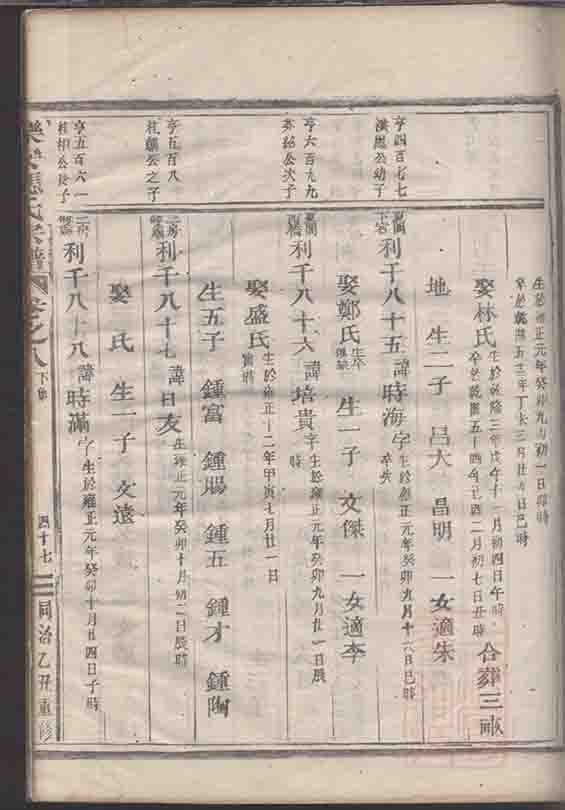 生於雍正元年癸卯九月初一日卯時
卒於乾隆五三年丁未三月廿六日巳時
娶林氏 生於乾隆三年戊午十一月初四日午時 合葬三畝
卒於乾隆五十四年己酉二月初七日丑時
地 生二子 昌大 昌明 一女適朱
亨四百七七
漢恩公幼子
利千八十五 諱時海 字 生於雍正元年癸卯九月十六日巳時
卒失
娶鄭氏 生卒俱缺 生一子 文傑 一女適李
亨六百九九
公次子
利千八十六 諱培貴 字 生於雍正元年癸卯九月廿一日辰
時
娶盛氏 生於雍正十二年甲寅七月廿一日
寅時
生五子 鍾富 鍾賜 鍾五 鍾才 鍾陶
亨五百八
桂麟公之子
二房
利千八十七 諱日友 生雍正元年癸卯十月初二日辰時
娶 氏 生一子 文遠
亨五百六一
桂相公長子
二房
利千八十八 諱時滿 字 生於雍正元年癸卯十月廿四日子時
氏宗譜 卷之八 下集 四十七 同治乙丑重修